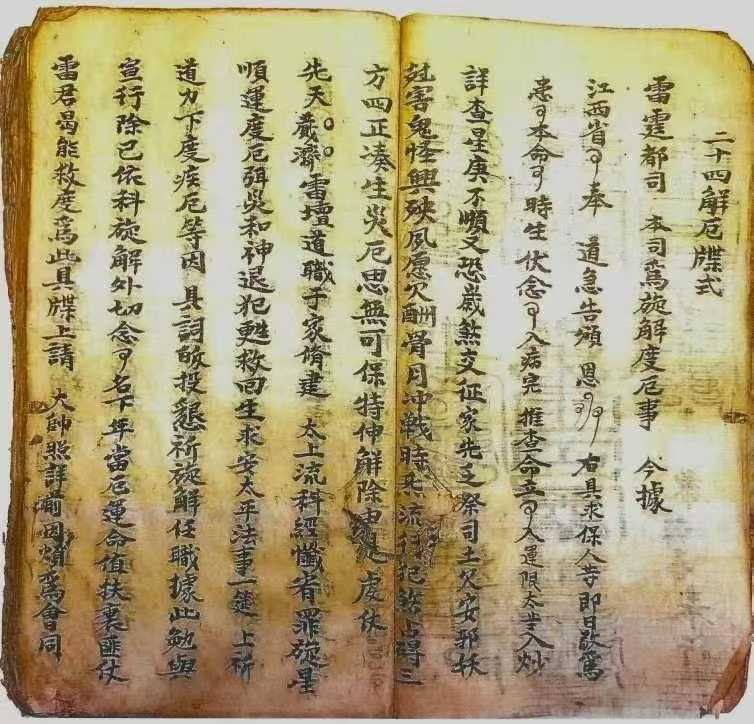 二十四解厄牒式
雷霆都司 本司為旋解度厄事 今據
江西省 奉 道急告頌 恩 右具求保人等即日敬為
患 本命 時生 伏念 入病完推查命主 入運限太半入炒
詳查星庚不順又恐歲煞交征家先乏祭司土欠安邪妖
尅害鬼怪興殃風愿欠酬骨月冲戰時 流行犯 占碍三
方四正湊生災厄思無可保特伸觧除 虔伏
先天藏濟雷壇道職于家脩建 太上流科經懺者罪旋星
順運度厄弭災和神退犯甦救回生求安太平法事一筵上祈
道力下度疾厄等因具詞敬投懇祈旋解任職據此勉與
宣行除已依科旋解外切念 名下年當厄運命值扶裏匪仗
雷君曷能救度為此具牒上請 大帥照詳前因煩為會同